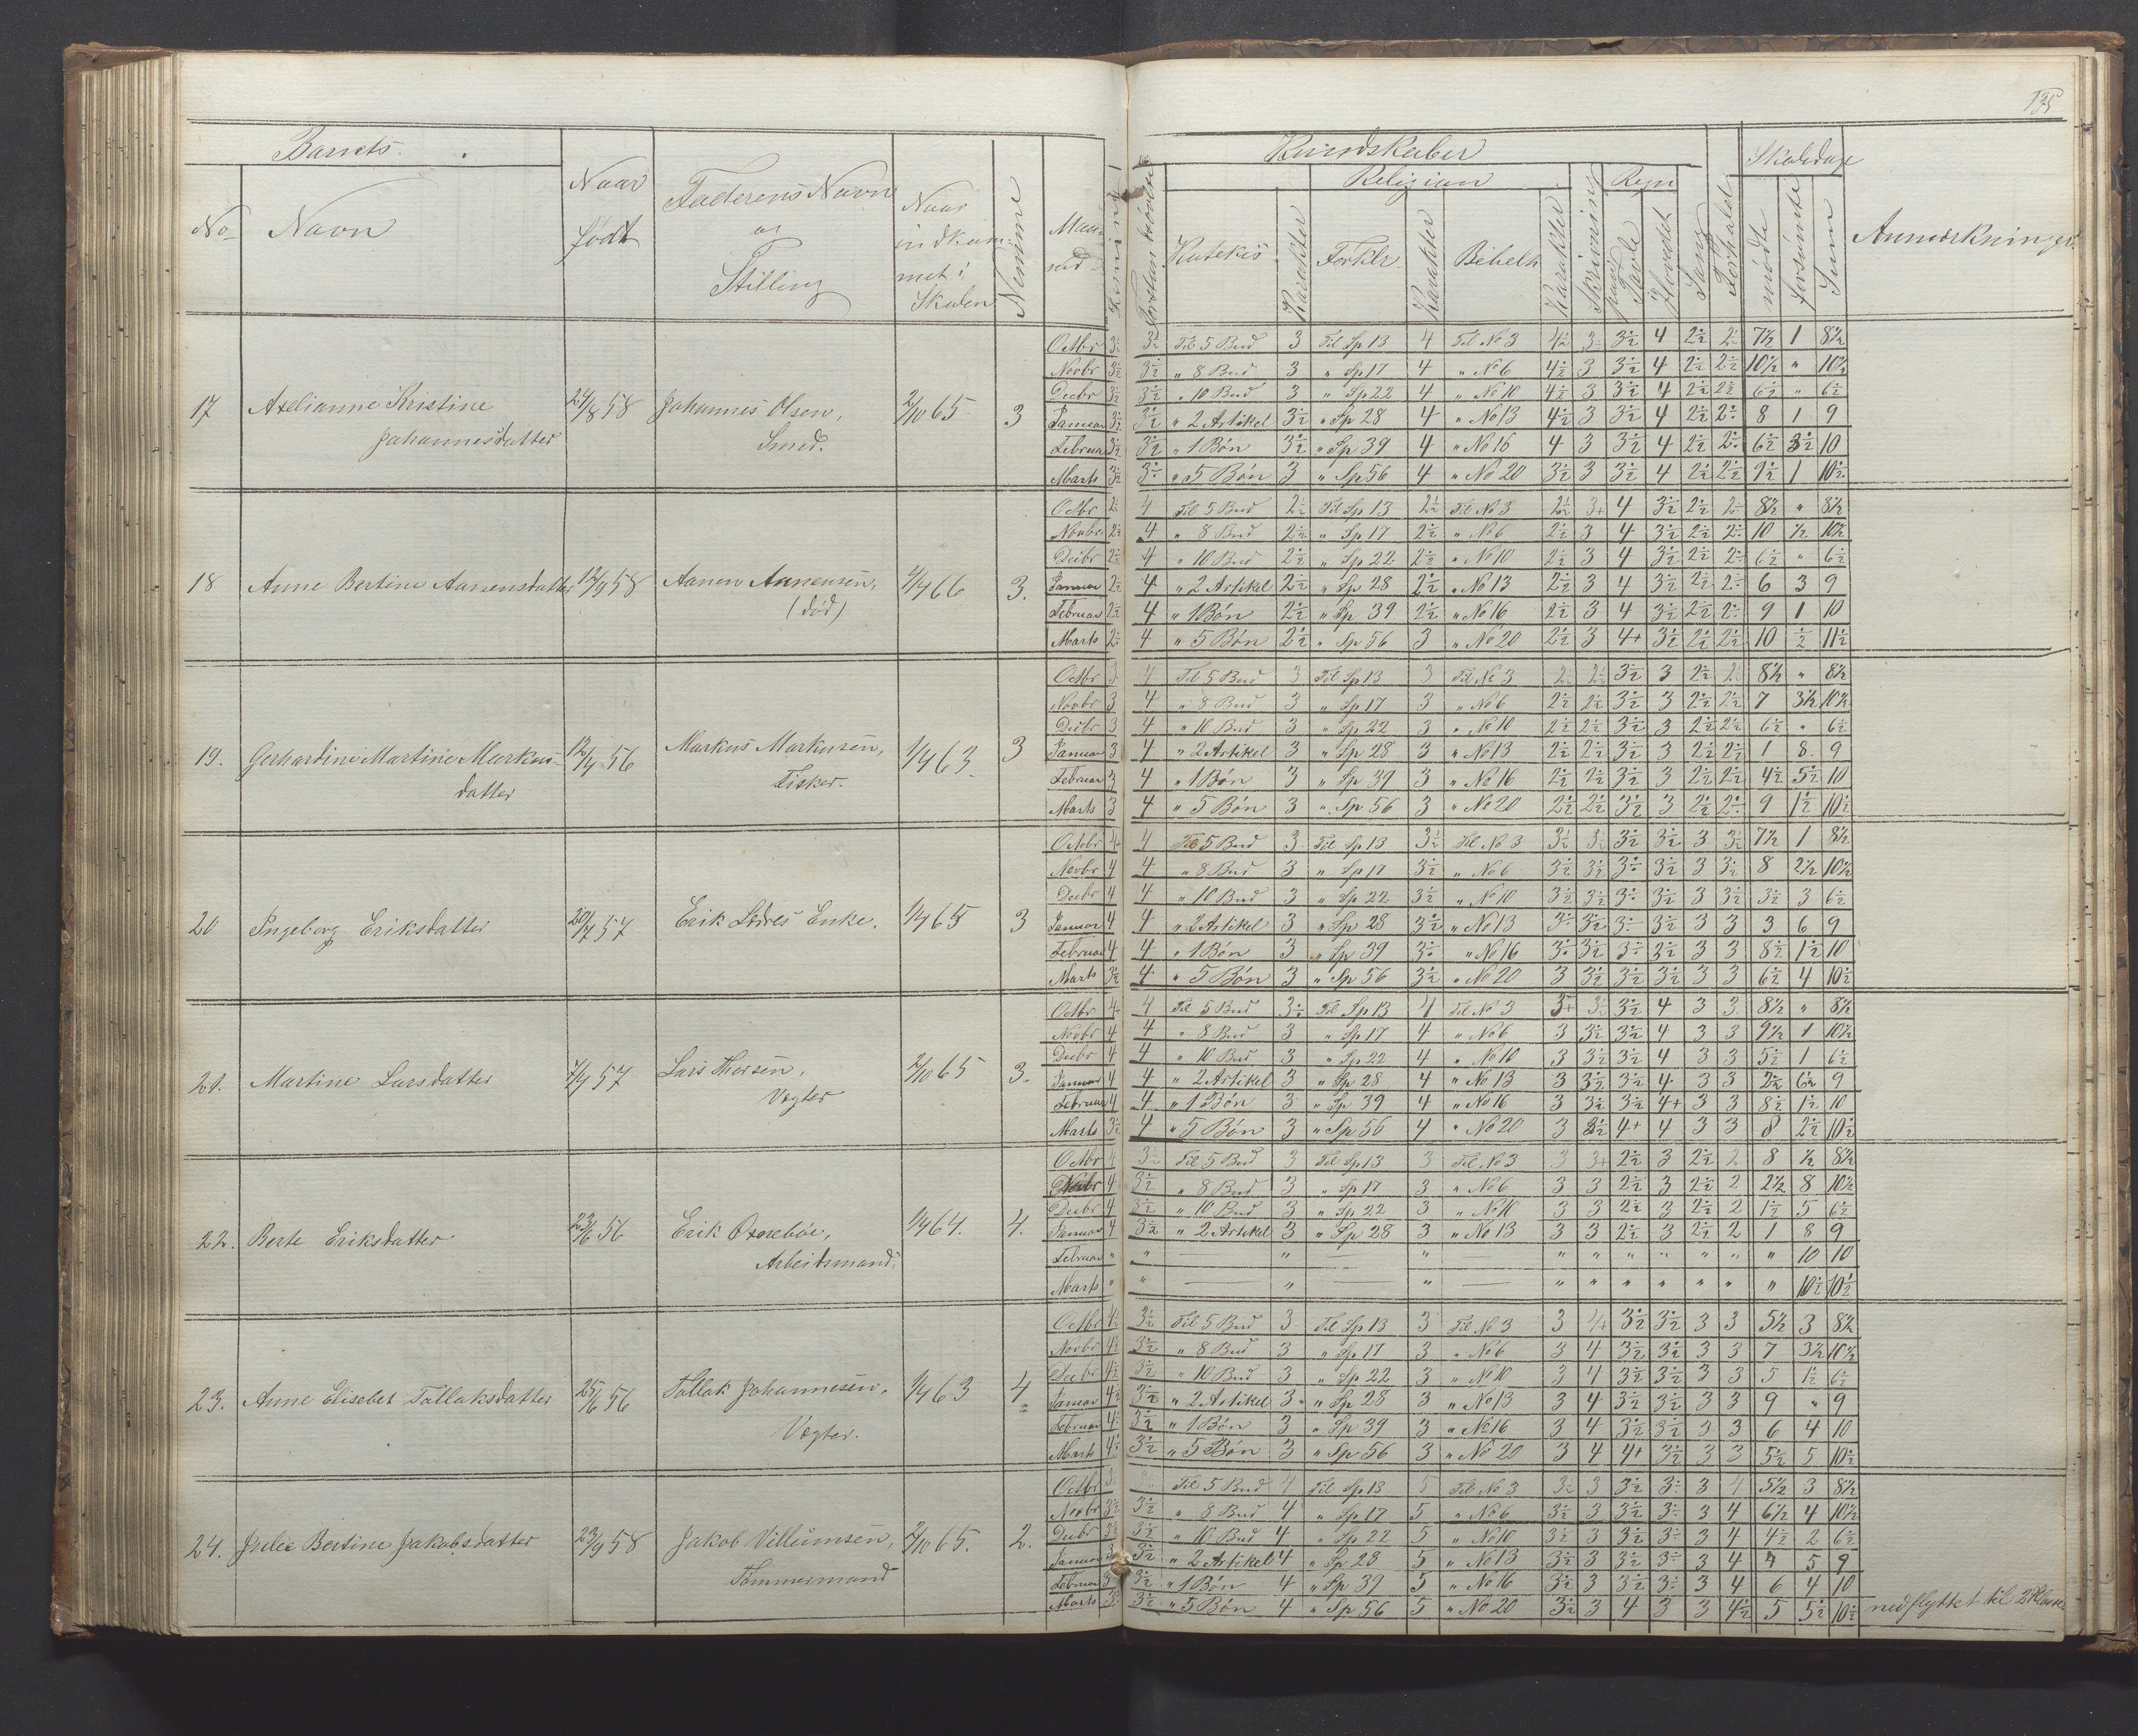 135
Barnets
Kundskaber
Skoledage
Religion
Regn
No
Navn
Naar født
Faderens Navn og Stilling
Naar indkommet i Skolen
Nemme
Maaned
Læsning
Katekis
Karakter
Forklr.
Karakter
Bibelh
Karakter
Skrivning
paa Tavle
i Hovedet
Sang
Forholdet
mødte
forsømte
Sum
Anmærkninger
17 Axelianne Kristine Johannesdatter 24/8 58 Johannes Olsen, Smed. 2/10 65 3
Octbr 3½ Til 5 Bud 3 Til Sp 13 4 Til No 3 7½ 1 8½
Novbr 3½ 3½ " 8 Bud 3 " Sp 17 4 " No 6 4½ 3 3½ 4 2½ 2½ 10½ " 10½
Decbr 3½ 3½ " 10 Bud 3 " Sp 22 4 " No 10 4½ 3 3½ 4 2½ 2½ 6½ " 6½
Januar 3½ 3½ " 2 Artikel 3½ " Sp 28 4 " No 13 4½ 3 3½ 4 2½ 8 1 9
Februar 3½ 3½ " 1 Bøn 3½ " Sp 39 4 " No 16 4 3 3½ 4 2½ 6½ 3½ 10
Marts 3½ " 5 Bøn 3 " Sp 56 4 " No 20 3½ 3 3½ 4 2½ 2½ 9½ 1 10½
18 Anne Bertine Aanensdatter 12/9 58 Aanen Aanensen, (død) 4/4 66 3.
Octbr 4 Til 5 Bud 2½ Til Sp 13 2½ Til No 3 2½ 3+ 4 3½ 2½ 8½ " 8½
Novbr 2½ 4 " 8 Bud 2½ " Sp 17 2½ " No 6 2½ 3 4 3½ 2½ 10 ½ 10½
Decbr 2½ 4 " 10 Bud 2½ " Sp 22 2½ " No 10 2½ 3 4 3½ 2½ 6½ " 6½
Januar 2½ 4 " 2 Artikel 2½ " Sp 28 2½ " No 13 2½ 3 4 3½ 2½ 6 3 9
Februar 2½ 4 " 1 Bøn 2½ " Sp 39 2½ " No 16 2½ 3 4 3½ 2½ 9 1 10
Marts 4 " 5 Bøn 2½ " Sp 56 3 " No 20 2½ 3 4+ 3½ 2½ 2½ 10 ½ 11½
19. Gerhardine Martine Markusdatter 12/4 56 Markus Markusen, Fisker. 1/4 63. 3
Octbr 3 4 Til 5 Bud 3 Til Sp 13 3 Til No 3 2½ 3½ 3 2½ 8½ " 8½
Novbr 3 4 " 8 Bud 3 " Sp 17 3 " No 6 2½ 2½ 3½ 3 2½ 2½ 7 3½ 10½
Decbr 3 4 " 10 Bud 3 " Sp 22 3 " No 10 2½ 2½ 3½ 3 2½ 2½ 6½ " 6½
Januar 3 4 " 2 Artikel 3 " Sp 28 3 " No 13 2½ 2½ 3½ 3 2½ 2½ 1 8 9
Februar 3 4 " 1 Bøn 3 " Sp 39 3 " No 16 2½ 2½ 3½ 3 2½ 2½ 4½ 5½ 10
Marts 3 4 " 5 Bøn 3 " Sp 56 3 " No 20 2½ 2½ 3½ 3 2½ 9 1½ 10½
20 Ingeborg Eriksdatter 20/7 57 Erik Enke. 1/4 65 3
Octbr 4+ 4 Til 5 Bud 3 Til Sp 13 3½ Til No 3 3½ 3½ 3½ 3½ 3 3½ 7½ 1 8½
Novbr 4 4 " 8 Bud 3 " Sp 17 3½ " No 6 3½ 3½ 3½ 3 3½ 8 2½ 10½
Decbr 4 4 " 10 Bud 3 " Sp 22 3½ " No 10 3½ 3½ 3½ 3 3½ 3½ 3 6½
Januar 4 4 " 2 Artikel 3 " Sp 28 3½ " No 13 3½ 3½ 3 3 3 6 9
Februar 4 4 " 1 Bøn 3 " Sp 39 " No 16 3½ 3½ 3 3 8½ 1½ 10
Marts 3½ 4 " 5 Bøn 3 " Sp 56 3½ " No 20 3 3½ 3½ 3½ 3 3 6½ 4 10½
21. Martine Larsdatter 7/7 57 Lars Thorsen, Vægter 2/10 65 3.
Octbr 4+ 4 Til 5 Bud Til Sp 13 4 Til No 3 3+ 3½ 4 3 3 8½ " 8½
Novbr 4 4 " 8 Bud 3 " Sp 17 4 " No 6 3 3½ 3½ 4 3 3 9½ 1 10½
Decbr 4 4 " 10 Bud 3 " Sp 22 4 " No 10 3 3½ 3½ 4 3 3 5½ 1 6½
Januar 4 4 " 2 Artikel 3 " Sp 28 4 " No 13 3 3½ 3½ 4 3 3 2½ 6½ 9
Februar 4 4 " 1 Bøn 3 " Sp 39 4 " No 16 3 3½ 3½ 4+ 3 3 8½ 1½ 10
Marts 3½ 4 " 5 Bøn 3 " Sp 56 4 " No 20 3 3½ 4+ 4 3 3 8 2½ 10½
22. Berte Eriksdatter 23/6 56 Erik Oxrebøe, Arbeidsmand. 1/4 64. 4.
Octbr 4 3½ Til 5 Bud 3 Til Sp 13 3 Til No 3 3 3+ 2½ 3 2½ 2 8 ½ 8½
Novbr 4 3½ " 8 Bud 3 " Sp 17 3 " No 6 3 3 2½ 3 2½ 2 2½ 8 10½
Decbr 4 3½ " 10 Bud 3 " Sp 22 3 " No 10 3 3 2½ 3 2½ 2 1½ 5 6½
Januar 4 3½ " 2 Artikel 3 " Sp 28 3 " No 13 3 3 2½ 3 2½ 2 1 8 9
Februar " " — " — " — " " " " " " " 10 10
Marts " " — " — " — " " " " " " " 10½ 10½
23. Anne Elisebet Tollaksdatter 25/6 56 Tollak Johannesen, Vægter. 1/4 63 4
Octbr 4½ 3½ Til 5 Bud 3 Til Sp 13 3 Til No 3 3 4+ 3½ 3½ 3 3 5½ 3 8½
Novbr 4½ 3½ " 8 Bud 3 " Sp 17 3 " No 6 3 4 3½ 3½ 3 3 7 3½ 10½
Decbr 4½ 3½ " 10 Bud 3 " Sp 22 3 " No 10 3 4 3½ 3½ 3 3 5 1½ 6½
Januar 4½ 3½ " 2 Artikel 3 " Sp 28 3 " No 13 3 4 3½ 3½ 3 3 9 " 9
Februar 3½ " 1 Bøn 3 " Sp 39 3 " No 16 3 4 3½ 3½ 3 3 6 4 10
Marts 3½ " 5 Bøn 3 " Sp 56 3 " No 20 3 4 4+ 3½ 3 3 5½ 5 10½
24. Julie Bertine Jakobsdatter 23/9 58 Jakob Villumsen, Tømmermand 2/10 65. 2.
Octbr Til 5 Bud 4 Til Sp 13 5 Til No 3 3½ 3 3½ 3 4 5½ 3 8½
Novbr 3½ 3½ " 8 Bud 4 " Sp 17 5 " No 6 3½ 3 3½ 3 4 6½ 4 10½
Decbr 3½ 3½ " 10 Bud 4 " Sp 22 5 " No 10 3½ 3 3½ 3 4 4½ 2 6½
Januar 3½ " 2 Artikel 4 " Sp 28 5 " No 13 3½ 3 3½ 3 4 4 5 9
Februar 3½ " 1 Bøn 4 " Sp 39 5 " No 16 3½ 3 3½ 3 4 6 4 10
Marts 3½ " 5 Bøn 4 " Sp 56 5 " No 20 3½ 3 4 3 3 4½ 5 5½ 10½ nedflyttet til 2 Klasse